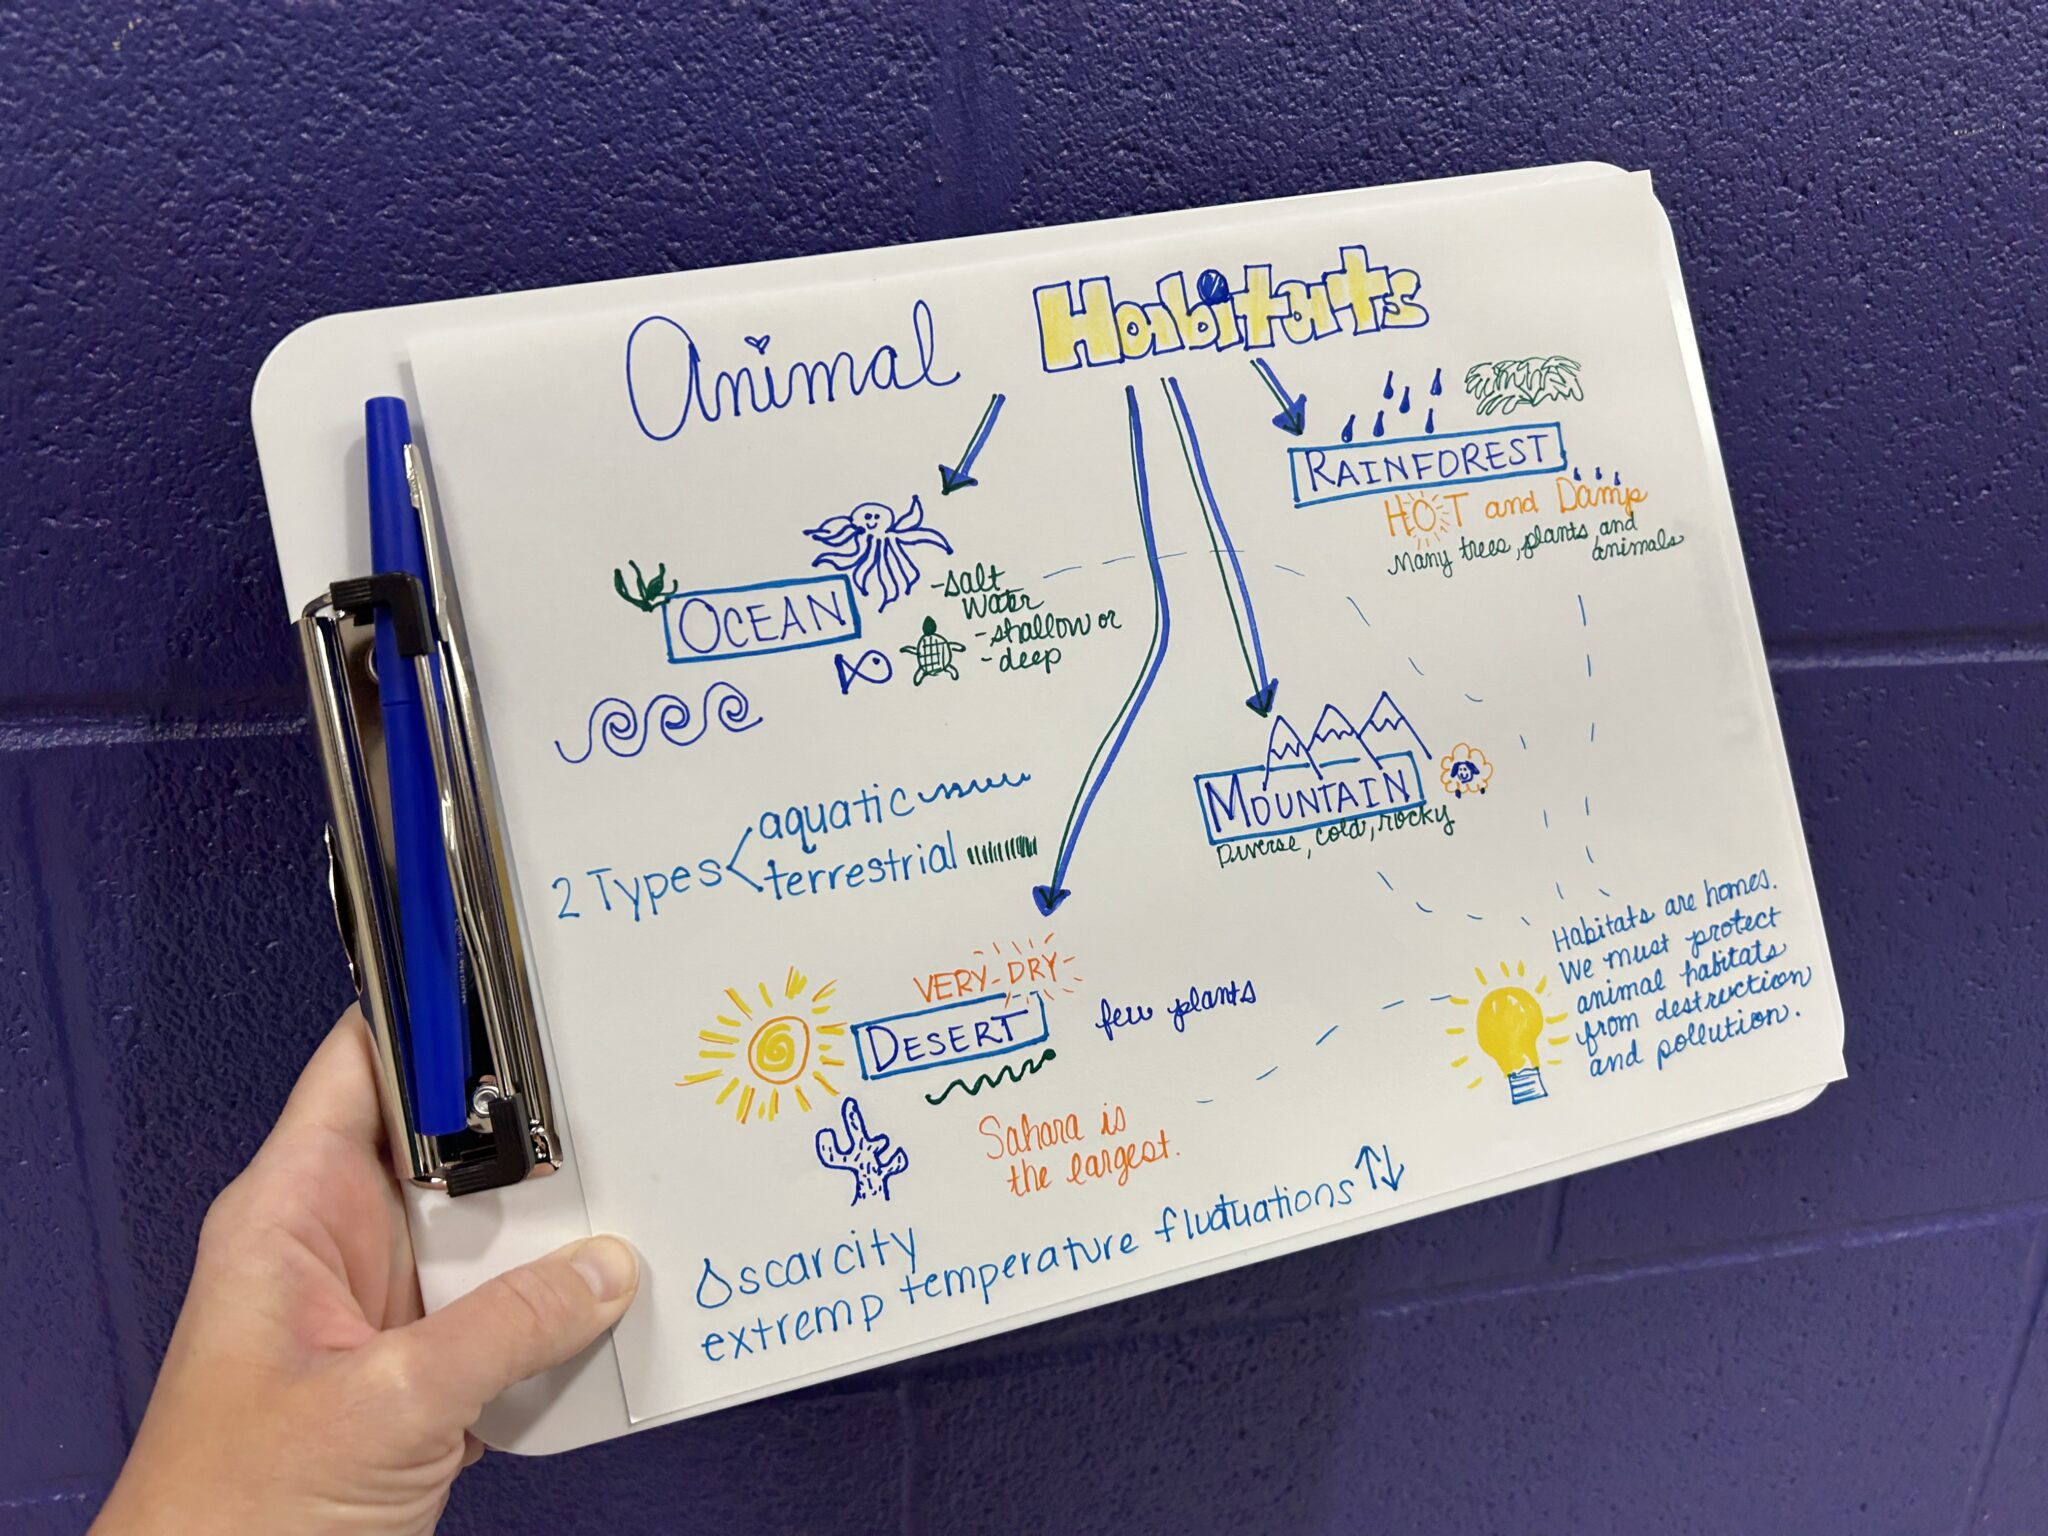 Animal Habitats
RAINFOREST
HOT and Damp
Many trees, plants, and
animals
OCEAN
-salt
water
-shallow or
-deep
MOUNTAIN
Diverse, cold, rocky
2 Types
aquatic
terrestrial
VERY DRY
DESERT
few plants
Sahara is
the largest.
scarcity
extremp temperature fluctuations
Habitats are homes.
We must protect
animal habitats
from destruction
and pollution.